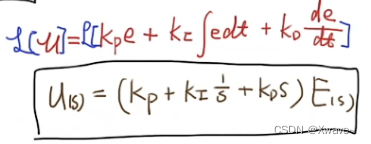 ℒ[u]=ℒ[kₚe + k_I∫edt + k_D de/dt]
U(s) = (kₚ + k_I 1/s + k_D s) E(s)
CSDN @Xwave